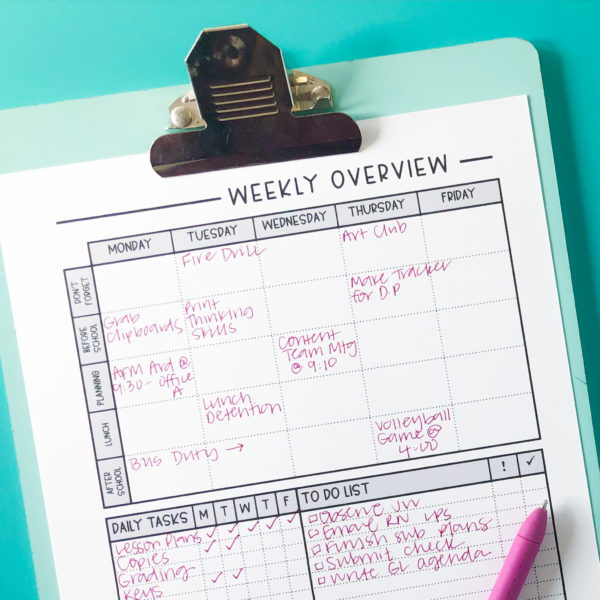 WEEKLY OVERVIEW
MONDAY TUESDAY WEDNESDAY THURSDAY FRIDAY
DON'T
FORGET
Fire Drill
Art Club
BEFORE
SCHOOL
Grab
Clipboards
Print
Thinking
Skills
Make Tracker
for D.P
PLANNING
@
9:30- Office
Content
Team Mtg
@ 9:10
LUNCH
Lunch
Detention
Volleyball
Game @
4:00
AFTER
SCHOOL
Bus Duty →
DAILY TASKS M T W T F
Lesson Plans ✓ ✓ ✓ ✓ ✓
Copies ✓ ✓
Grading
Keys ✓ ✓
TO DO LIST ! ✓
Observe JW
RN LPs
Finish sub plans
Submit check
Write GL agenda